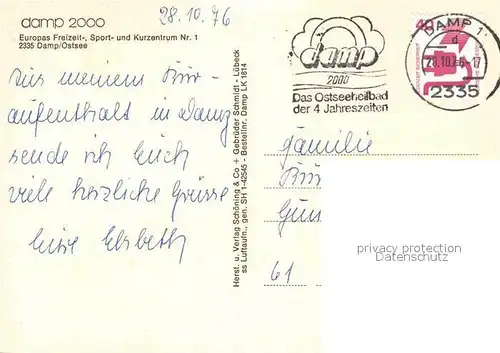 damp 2000
28.10.76
Europas Freizeit-, Sport- und Kurzentrum Nr. 1
2335 Damp/Ostsee
Aus meinem Kur-
aufenthalt in Damp
sende ich Euch
viele herzliche Grüsse
Eure Elsbeth
Herst. u. Verlag Schöning & Co + Gebrüder Schmidt - Lübeck
ss Luftaufn., gen. SH 1-42545 - Bestellnr. Damp LK 1814
damp
2000
Das Ostseeheilbad
der 4 Jahreszeiten
DAMP 1
d
28.10.76-17
2335
40
Familie
61
privacy protection
Datenschutz